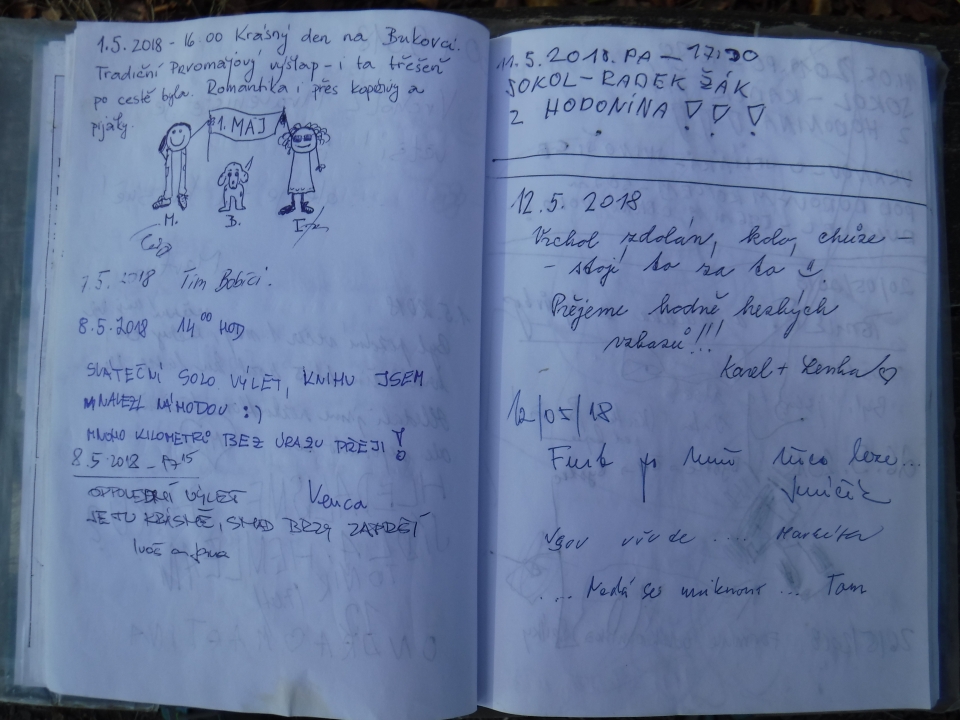 1.5. 2018 - 16 00 Krásný den na Bukovci.
Tradiční prvomájový výšlap - i ta třešeň
po cestě byla. Romantika i přes kopřivy a
pijáky.
1. MÁJ
M. B. I.
7.5. 2018 Tim Bobiči.
8.5.2018 14 00 HOD
SVÁTEČNÍ SOLO VÝLET, KNIHU JSEM
NALEZL NÁHODOU :)
MNOHO KILOMETRŮ BEZ ÚRAZU PŘEJI !
8.5 2018 - 17 15
Venca
ODPOLEDNÍ VÝLET
JE TU KRÁSNĚ, SNAD BRZY ZAPRŠÍ
11.5.2018. PA - 17:30
SOKOL - RADEK ŽÁK
Z HODONÍNA ! ! !
12.5. 2018
Vrchol zdolán, kolo, chůze -
- stojí to za to
Přejeme hodně hezkých
vzkazů!!!
Karel + Lenka ♡
12/05/18
Furt po
leze...
.... Markéta
... Nedá se uniknout ... Tom